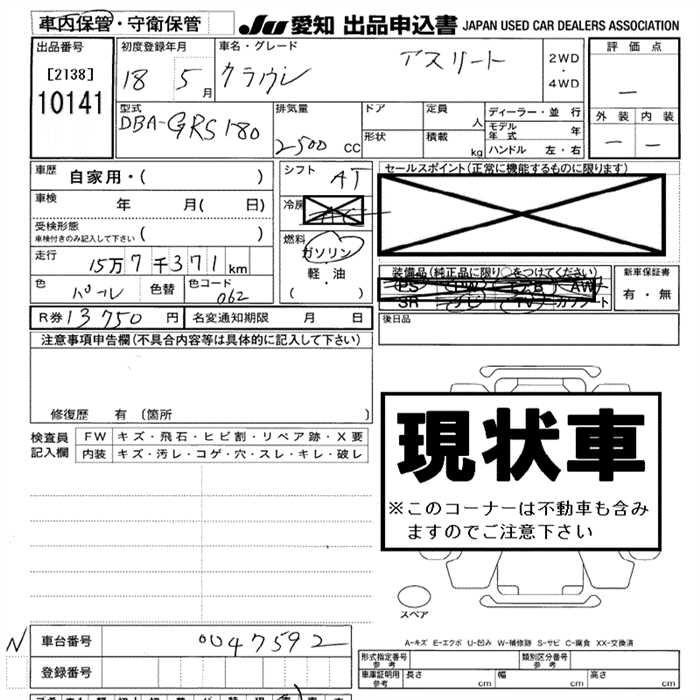 車内保管・守衛保管
JU 愛知 出品申込書 JAPAN USED CAR DEALERS ASSOCIATION
出品番号
[2138]
10141
初度登録年月
18 5月
車名・グレード
クラウン アスリート
2WD
・
4WD
評価点
―
外装 内装
― ―
型式
DBA-GRS180
排気量
2500 CC
ドア
形状
定員 人
積載 kg
ディーラー・並行
モデル年式 年
ハンドル 左・右
車歴 自家用・( )
車検 年 月( 日)
受検形態
車検付きのみ記入して下さい ( )
走行 15万7千371km
色 パール 色替 色コード 062
シフト AT
冷房 AC
燃料
ガソリン
軽・油
( ・ )
セールスポイント(正常に機能するものに限ります)
装備品(純正品に限り○をつけてください)
PS PW エアB AW
SR ナビ TV カワシート
新車保証書
有・無
R券 13750 円 名変通知期限 月 日
後日品
注意事項申告欄(不具合内容等は具体的に記入して下さい)
修復歴 有 〔箇所 〕
検査員記入欄
FW キズ・飛石・ヒビ割・リペア跡・X要
内装 キズ・汚レ・コゲ・穴・スレ・キレ・破レ
現状車
※このコーナーは不動車も含み
ますのでご注意下さい
スペア
A-キズ E-エクボ U-凹み W-補修跡 S-サビ C-腐食 XX-交換済
N 車台番号 0047592
登録番号
形式指定番号 参考
類別区分番号 参考
車庫証明用 参考 長さ cm 幅 cm 高さ cm